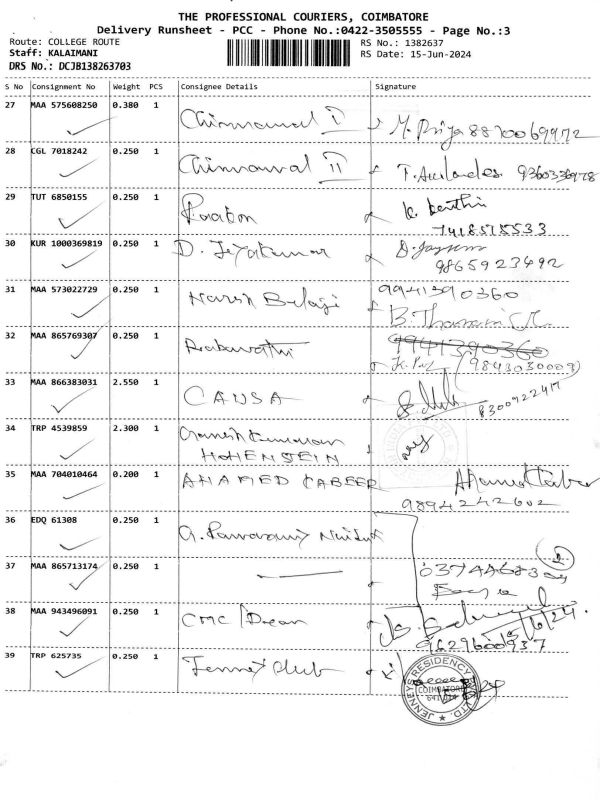 THE PROFESSIONAL COURIERS, COIMBATORE
Delivery Runsheet - PCC - Phone No.:0422-3505555 - Page No.:3
Route: COLLEGE ROUTE RS No.: 1382637
Staff: KALAIMANI RS Date: 15-Jun-2024
DRS No.: DCJB138263703
S No Consignment No Weight PCS Consignee Details Signature
27 MAA 575608250 0.380 1 Chinnawal I M. Priya 8870069972
28 CGL 7018242 0.250 1 Chinnawal II 9360336978
29 TUT 6850155 0.250 1 K. Kerthi
7418575533
30 KUR 1000369819 0.250 1 D. Jeyakumar
9865923492
31 MAA 573022729 0.250 1 Naresh Balaji 9941390360
B.
32 MAA 865769307 0.250 1 9941390360
(9843030009)
33 MAA 866383031 2.550 1 CANSA 8300922417
34 TRP 4539859 2.300 1 Ganesh Kumaran
HOHENSTEIN
35 MAA 704010464 0.200 1 AHAMED CABEER
9894242602
36 EDQ 61308 0.250 1
37 MAA 865713174 0.250 1 2
38 MAA 943496091 0.250 1 CMC/Dean 15/6/24.
9629600937
39 TRP 625735 0.250 1 Jenney club
JENNEYS RESIDENCY PVT. LTD.
COIMBATORE
641 014